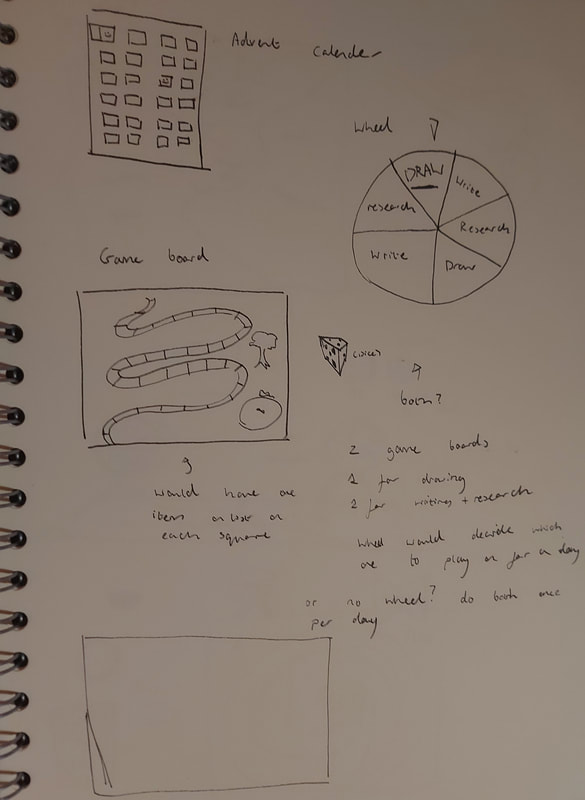 Advent Calender
Wheel
DRAW
Write
research
Research
Write
Draw
Game board
(dice)
both?
2 game boards
1 for drawing
1 for writing + research
would have one
item on list on
each square
wheel would decide which
one to play on for a day
or no wheel? do both once
per day